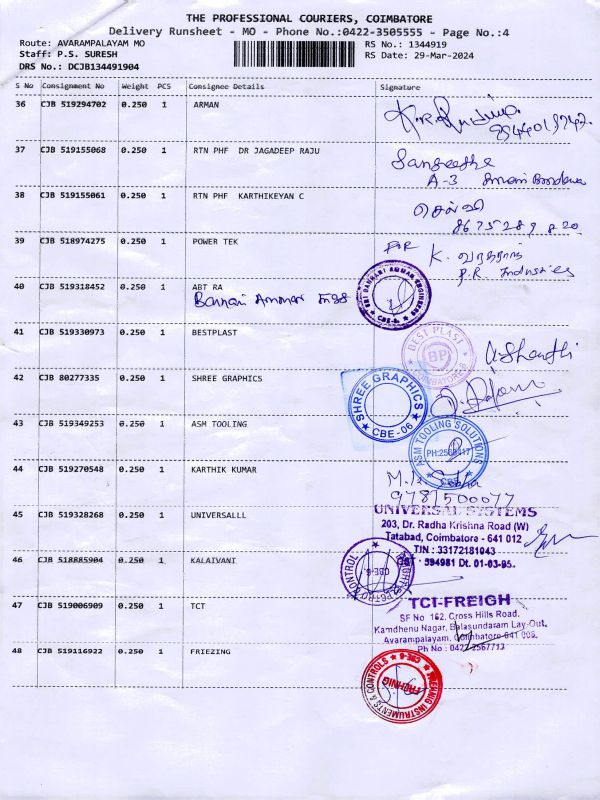 THE PROFESSIONAL COURIERS, COIMBATORE
Delivery Runsheet - MO - Phone No.:0422-3505555 - Page No.:4
Route: AVARAMPALAYAM MO
Staff: P.S. SURESH
DRS No.: DCJB134491904
RS No.: 1344919
RS Date: 29-Mar-2024
S No Consignment No Weight PCS Consignee Details Signature
36 CJB 519294702 0.250 1 ARMAN
37 CJB 519155068 0.250 1 RTN PHF DR JAGADEEP RAJU
Sangeetha
A-3
38 CJB 519155061 0.250 1 RTN PHF KARTHIKEYAN C
செல்வி
8675289820
39 CJB 518974275 0.250 1 POWER TEK
K.
P.R Industries
40 CJB 519318452 0.250 1 ABT RA
Bannari Amman
SRI BANNARI AMMAN ENGINEERS
CBE-6
41 CJB 519330973 0.250 1 BESTPLAST
BEST PLAST
BP
COIMBATORE
42 CJB 80277335 0.250 1 SHREE GRAPHICS
SHREE GRAPHICS
CBE-06
43 CJB 519349253 0.250 1 ASM TOOLING
ASM TOOLING SOLUTIONS
CBE
44 CJB 519270548 0.250 1 KARTHIK KUMAR
9781500077
45 CJB 519328268 0.250 1 UNIVERSALLL
UNIVERSAL SYSTEMS
203, Dr. Radha Krishna Road (W)
Tatabad, Coimbatore - 641 012
TIN : 33172181043
CST : 394981 Dt. 01-03-95.
46 CJB 518885904 0.250 1 KALAIVANI
CONTROL
CBE-6
47 CJB 519006909 0.250 1 TCT
TCI-FREIGH
SF No 162, Cross Hills Road,
Kamdhenu Nagar, Balasundaram Lay-Out,
Avarampalayam, Coimbatore-641 006.
Ph No : 0422-2567713
48 CJB 519116922 0.250 1 FRIEZING
INSTRUMENTS & CONTROLS
CBE-6